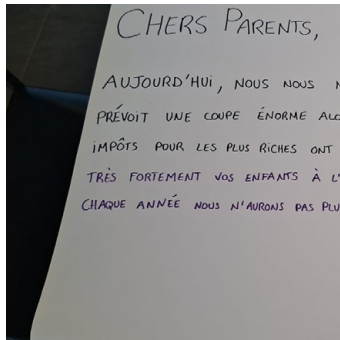 CHERS PARENTS,
AUJOURD'HUI, NOUS NOUS
PRÉVOIT UNE COUPE ÉNORME
IMPÔTS POUR LES PLUS RICHES ONT
TRÈS FORTEMENT VOS ENFANTS À
CHAQUE ANNÉE NOUS N'AURONS PAS